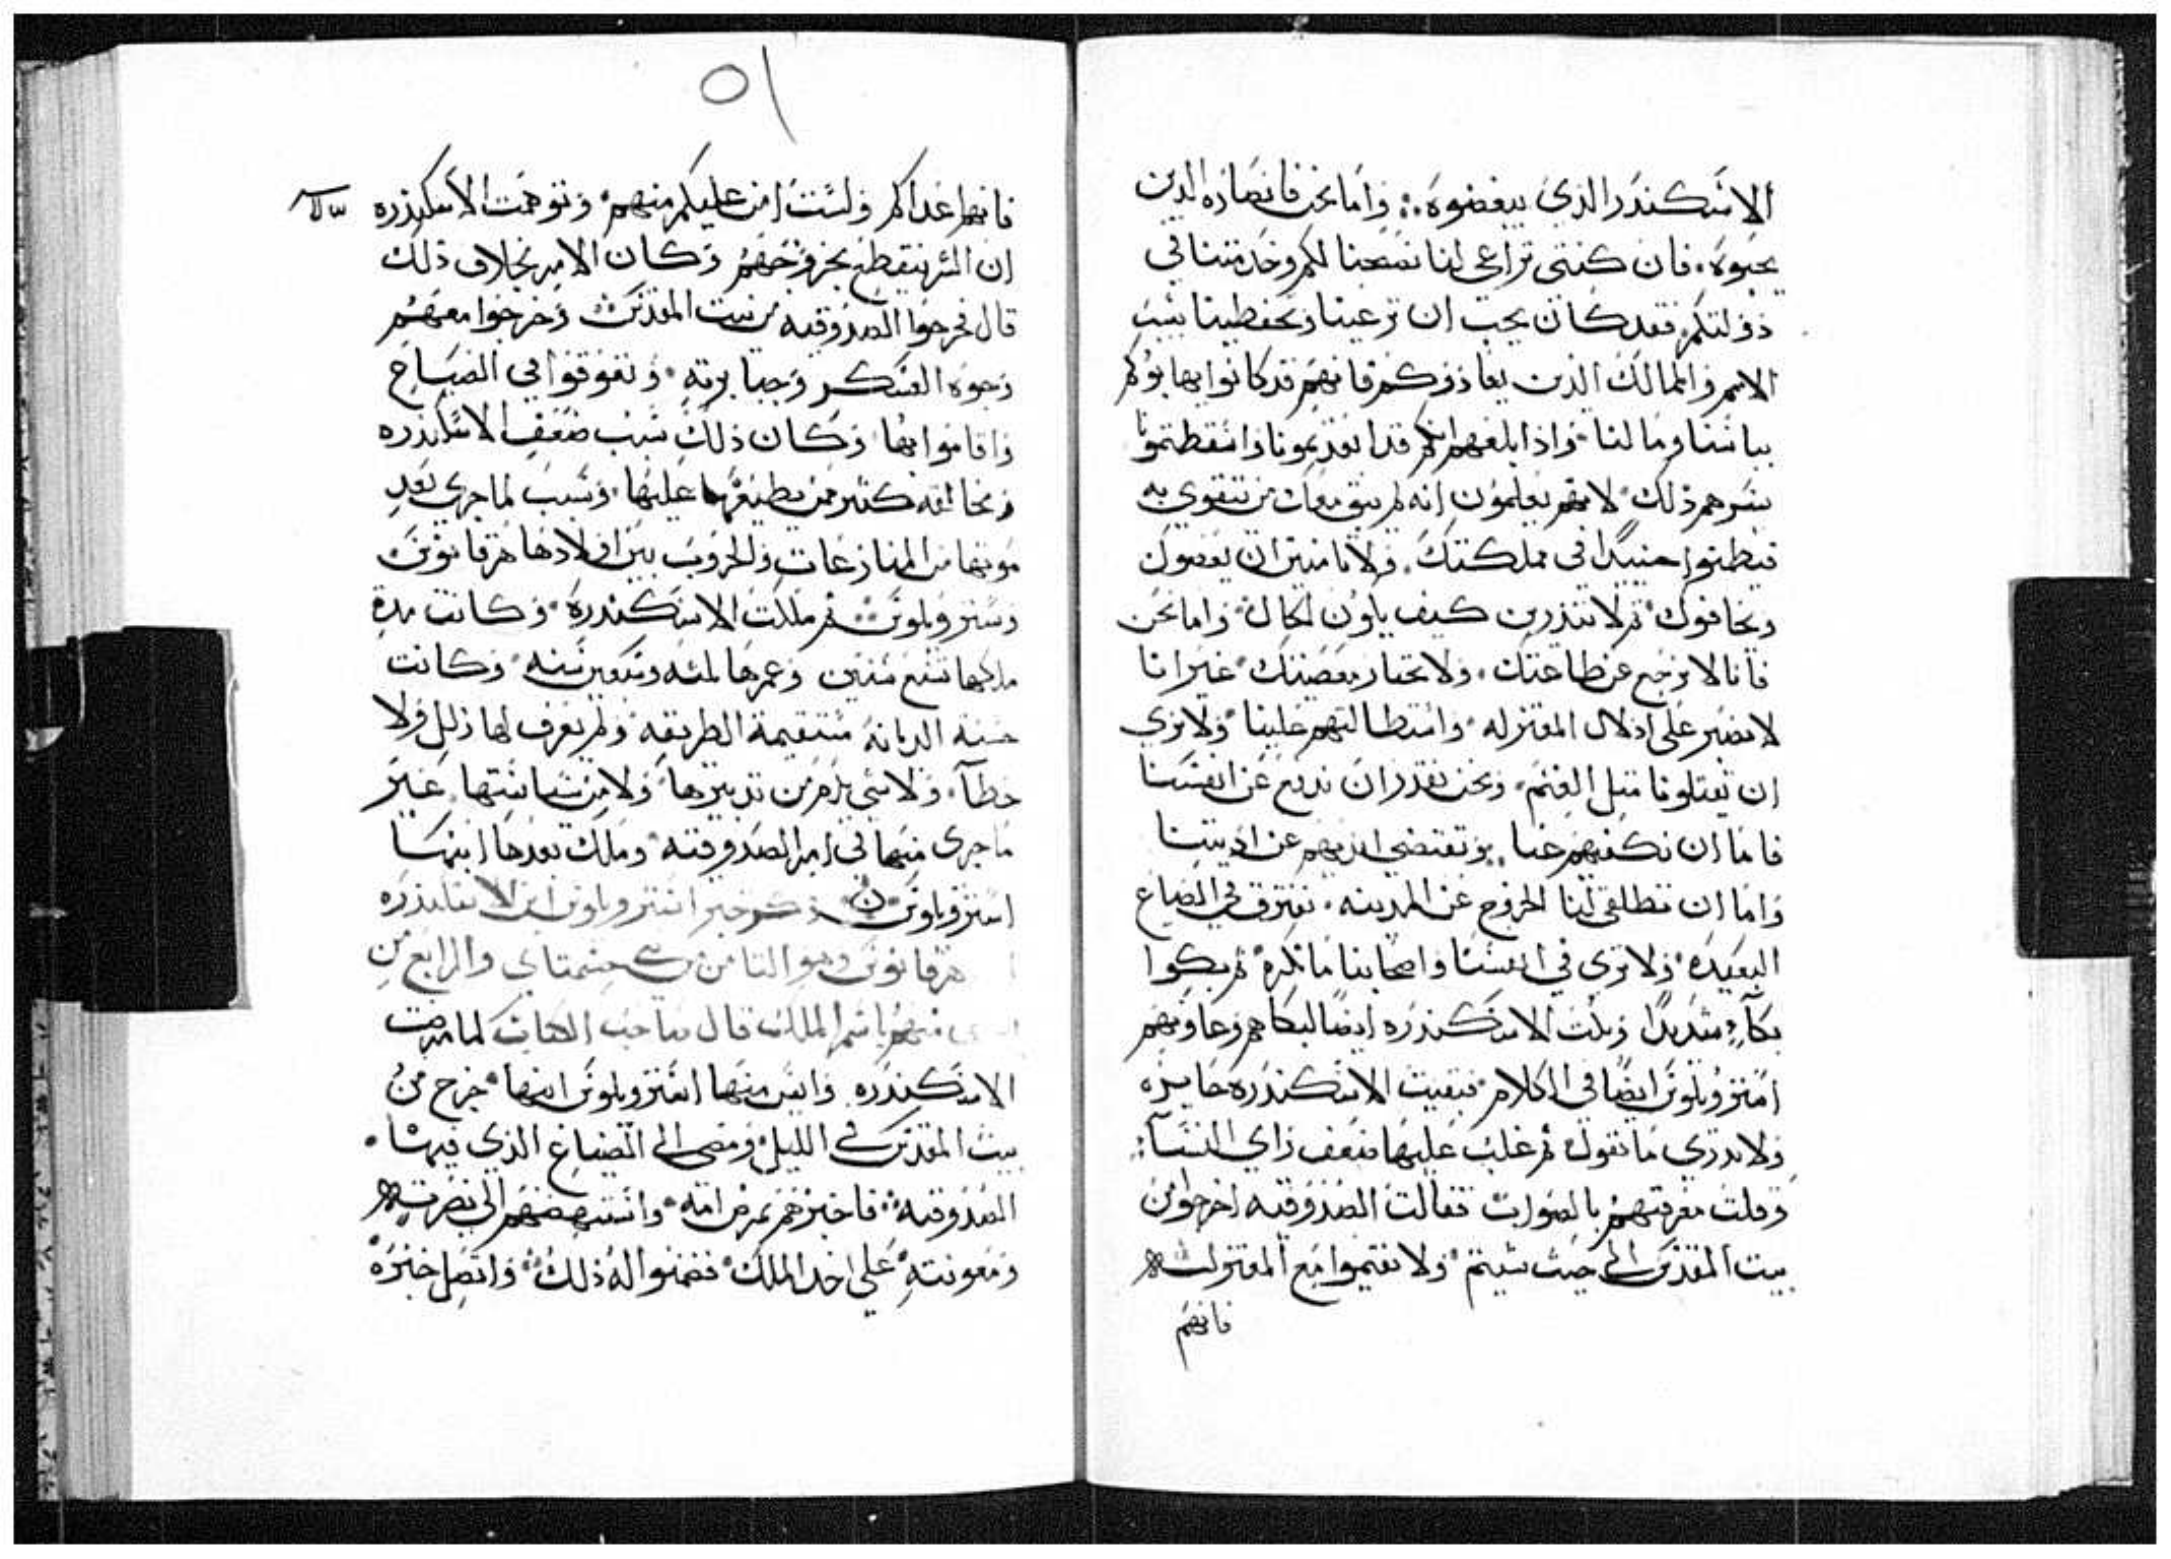 الاسكندر الذي يبغضوه. واما نحن فانصاره الدين
يحبوه. فان كنتي تراعي لنا نصحنا لكم وخدمتنا في
دولتكم فقد كان يجب ان ترعينا وتحفظينا بسبب
الامم والممالك الدين يعادوكم فانهم قد كانوا يهابوكم
بباسنا وما لنا واذا بلغهم انكم قد ابعدتمونا واسقطتمونا
يسرهم ذلك لانهم يعلمون انه لم يبق معك من تتقوي به
فيطمعوا حينيدا في مملكتك. ولا تامنين ان يعصوك
ويخالفوك ثم لا تتدرين كيف ياون الحال واما نحن
فانا لا نرجع عن طاعتك. ولا نختار معصيتك غير انا
لا نصبر على ادلال المعتزله واستطالتهم علينا ولا نري
ان يقتلونا متل الغنم. ونحن نقدر ان ندفع عن انفسنا
فاما ان تكفيهم عنا. وتقتضي ايديهم عن اديتنا
واما ان تطلقي لنا الخروج عن المدينه. نفترق في الضياع
البعيده ولا نري في انفسنا واصحابنا ما نكره ثم بكوا
بكآء شديدًا وبكت الاسكندره ايضا لبكاهم وعاونهم
استروبلوس ايضًا في الكلام فبقيت الاسكندره حايره
ولا تدري ما تقول ثم غلب عليها ضعف راي النسآ
وقلت معرفتهم بالصواب فقالت الصدوقيه اخرجوا من
بيت المقدس الى حيث شيتم ولا تقيموا مع المعتزله
فانهم
٥١
فانهم اعداكم ولست امن عليكم منهم وتوهمت الاسكندره
ان الشر ينقطع بخروجهم وكان الامر بخلاف ذلك
قال فخرجوا الصدوقيه من بيت المقدس وخرجوا معهم
وجوه العسكر وجبابرته وتفرقوا في الضياع
واقاموا بها وكان ذلك سبب ضعف الاسكندره
ومخالفه كتير ممن يطيعها عليها وسبب لما جري بعد
موتها من المنازعات والحروب بين اولادها هرقانوس
وسترو بلوس ثم ملكت الاسكندره وكانت مدة
ملكها تسع سنين وعمرها لمئه وسبعين سنه وكانت
حسنة الديانة مستقيمة الطريقه ولم يعرف لها زلل ولا
خطآ. ولا شي يذم من تدبيرها ولا من سياستها غير
ما جرى منها في امر الصدوقيه وملك بعدها ابنها
استروبلوس ذكر خبر استروبلوس ابن الاسكندره
هرقانوس وهو التامن من حشمتاي والرابع من
منهم باسم الملك قال صاحب الكتاب لما مرضت
الاسكندره وايس منها استروبلوس ابنها خرج من
بيت المقدس في الليل ومضى الى الضياع الذي فيها
الصدوقيه فاخبرهم بمرض امه واستنهضهم الى نصرته
ومعونته على اخد الملك فضمنوا له ذلك واتصل خبره